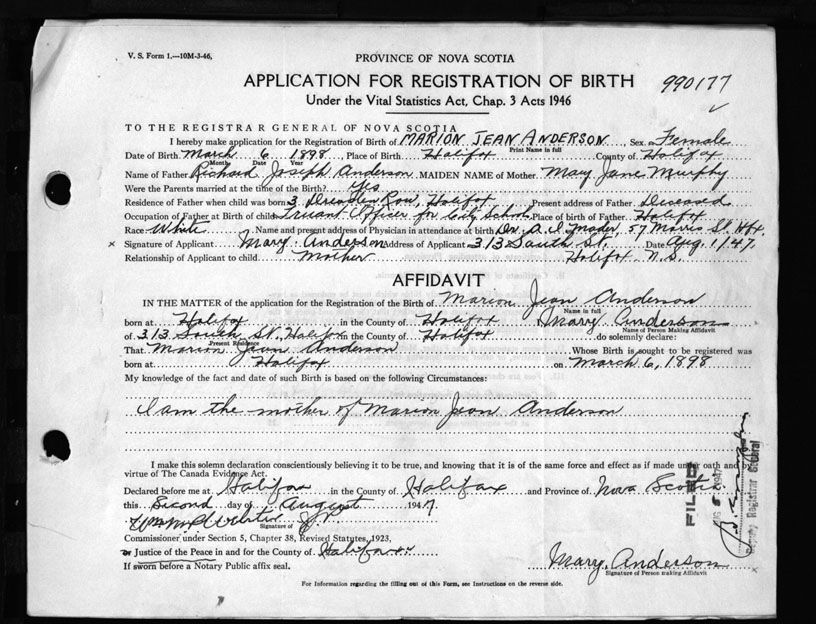 V. S. Form 1.—10M-3-46,
PROVINCE OF NOVA SCOTIA
APPLICATION FOR REGISTRATION OF BIRTH
990177
Under the Vital Statistics Act, Chap. 3 Acts 1946
TO THE REGISTRAR GENERAL OF NOVA SCOTIA
I hereby make application for the Registration of Birth of MARION JEAN ANDERSON, Sex Female
Print Name in full
Date of Birth March 6 1898 Place of Birth Halifax County of Halifax
Month Date Year
Name of Father Richard Joseph Anderson MAIDEN NAME of Mother Mary Jane Murphy
Were the Parents married at the time of the Birth? Yes
Residence of Father when child was born 3 Dresden Row, Halifax Present address of Father Diseased
Occupation of Father at Birth of child Truant Officer for City School Place of birth of Father Halifax
Race White Name and present address of Physician in attendance at birth Dr. A. I. Mader, 57 Morris St. Hfx.
x Signature of Applicant Mary Anderson Address of Applicant 313 South St. Date Aug. 1/47.
Relationship of Applicant to child Mother Halifax N.S.
AFFIDAVIT
IN THE MATTER of the application for the Registration of the Birth of Marion Jean Anderson
Name in full
born at Halifax in the County of Halifax I Mary Anderson
Name of Person Making Affidavit
of 313 South St. Halifax in the County of Halifax do solemnly declare:
Present Residence
That Marion Jean Anderson Whose Birth is sought to be registered was
born at Halifax on March 6, 1898
My knowledge of the fact and date of such Birth is based on the following Circumstances:
I am the mother of Marion Jean Anderson
I make this solemn declaration conscientiously believing it to be true, and knowing that it is of the same force and effect as if made under oath and by
virtue of The Canada Evidence Act.
Declared before me at Halifax in the County of Halifax and Province of Nova Scotia
this Second day of August 1947
Signature of
Commissioner under Section 5, Chapter 38, Revised Statutes, 1923,
or Justice of the Peace in and for the County of Halifax
If sworn before a Notary Public affix seal.
Mary Anderson
Signature of Person making Affidavit
For Information regarding the filling out of this Form, see Instructions on the reverse side.
FILED
1947
Deputy Registrar General